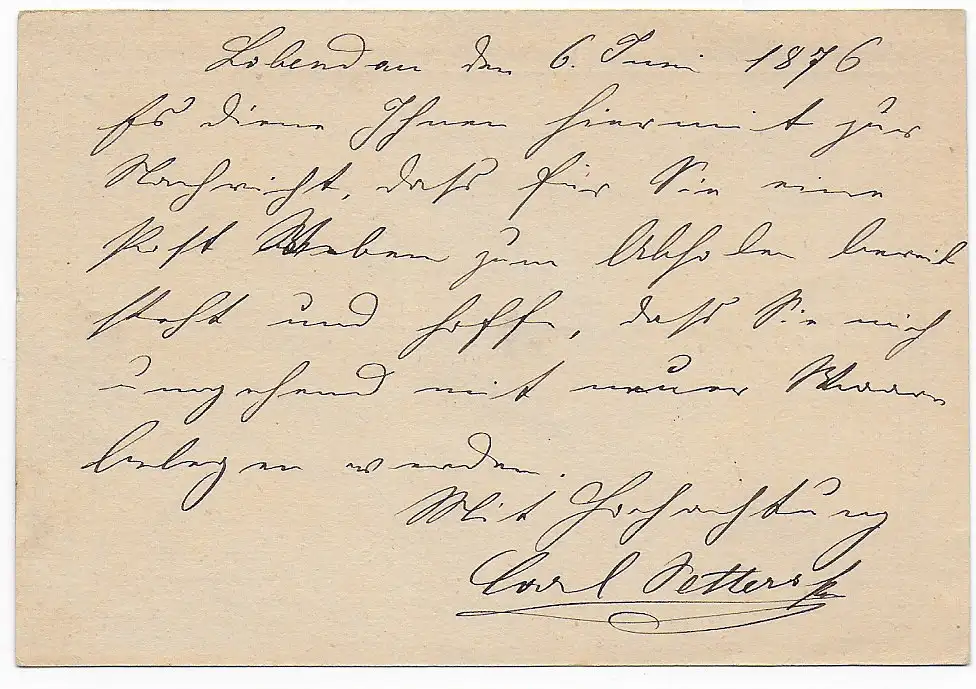 Lobendau den 6. Juni 1876
Es diene Ihnen hiermit zur
Nachricht, dass für Sie eine
Post Weben zum Abholen bereit
steht und hoffe, dass Sie mich
umgehend mit neuer Waare
belegen werden.
Mit Hochachtung
Carl